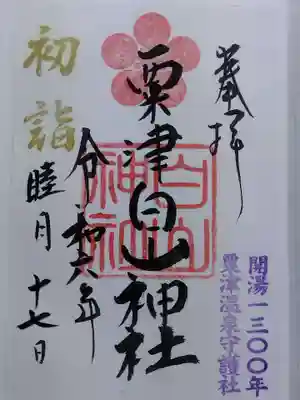 奉拝
開湯一三〇〇年
粟津温泉守護社
粟津白山神社
白山
神社
令和六年
睦月十七日
初詣